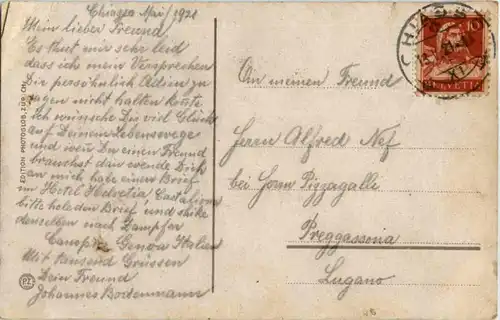 Chiasso Mai/1921
Mein lieber Freund
Es thut mir sehr leid
dass ich mein Versprechen
Dir persöhnlich Adieu zu
sagen nicht halten konte
ich wünsche Dir viel Glück
auf Deinem Lebenswege
und wen Du einen Freund
brauchst dan wende Dich
an mich habe einen Brief
im Hotel Helvetia
bitte hole den Brief und shike
denselben nach Dampfer
Genova Italien
Mit tausend Grüssen
Dein Freund
Johannes Bodenmann
EDITION PHOTOGLOB, ZÜRICH
PZ
CHIASSO
10
HELVETIA
An meinen Freund
Herrn Alfred Nef
bei Herrn Pizzagalli
Preggassona
Lugano